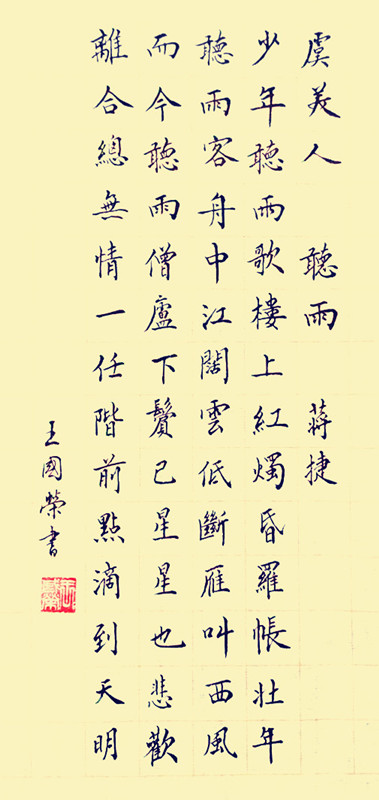 虞美人 聽雨 蔣捷
少年聽雨歌樓上紅燭昏羅帳壯年
聽雨客舟中江闊雲低斷雁叫西風
而今聽雨僧廬下鬢已星星也悲歡
離合總無情一任階前點滴到天明
王國榮書